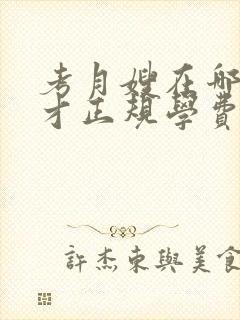 考月嫂在哪
才正規學費
許杰東與美食